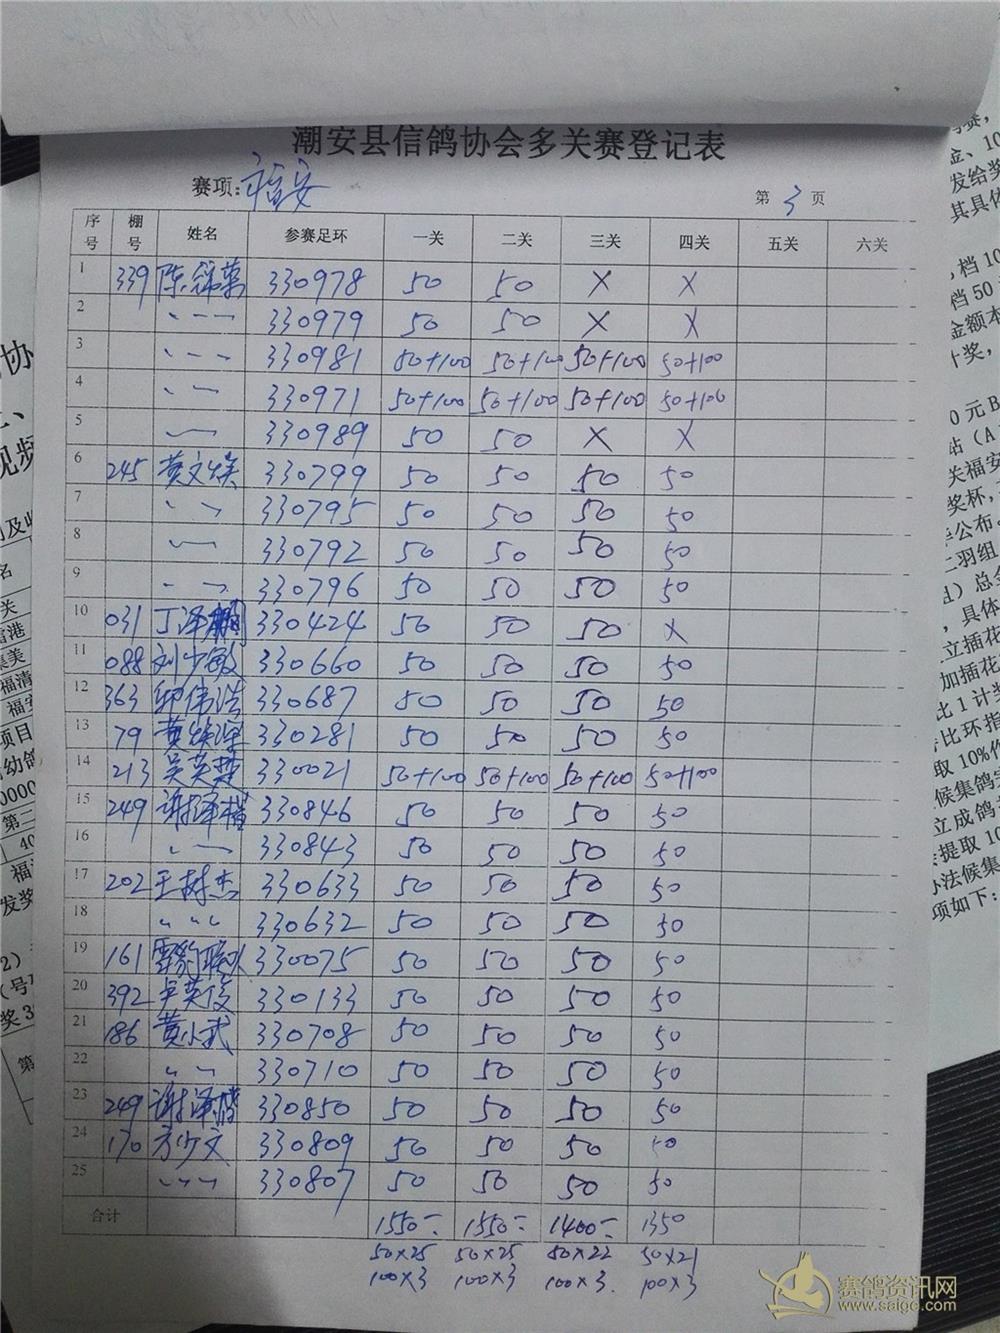 潮安县信鸽协会多关赛登记表
赛项: 福安
第 3 页
序号 棚号 姓名 参赛足环 一关 二关 三关 四关 五关 六关
1 339 陈锦荣 330978 50 50 X X
2 〃 330979 50 50 X X
3 〃 330981 50+100 50+100 50+100 50+100
4 〃 330971 50+100 50+100 50+100 50+100
5 〃 330989 50 50 X X
6 245 黄文焕 330799 50 50 50 50
7 〃 330795 50 50 50 50
8 〃 330792 50 50 50 50
9 〃 330796 50 50 50 50
10 031 丁泽鹏 330424 50 50 50 X
11 088 刘少敏 330660 50 50 50 50
12 363 伟浩 330687 50 50 50 50
13 79 黄焕深 330281 50 50 50 50
14 213 吴英楚 330021 50+100 50+100 50+100 50+100
15 249 谢泽楷 330846 50 50 50 50
16 〃 330843 50 50 50 50
17 202 王树杰 330633 50 50 50 50
18 〃 330632 50 50 50 50
19 161 雪豹联队 330075 50 50 50 50
20 392 卢英俊 330133 50 50 50 50
21 186 黄小武 330708 50 50 50 50
22 〃 330710 50 50 50 50
23 249 谢泽楷 330850 50 50 50 50
24 170 方少文 330809 50 50 50 50
25 〃 330807 50 50 50 50
合计 1550- 1550- 1400- 1350
50×25 50×25 50×22 50×21
100×3 100×3 100×3 100×3
赛鸽资讯网
www.saige.com